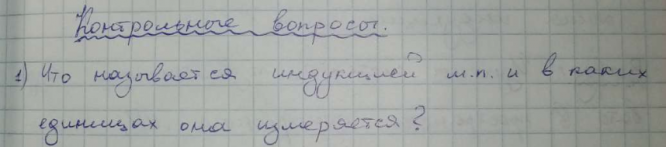 Контрольные вопросы.
1) Что называется индукцией м.п. и в каких
единицах она измеряется?